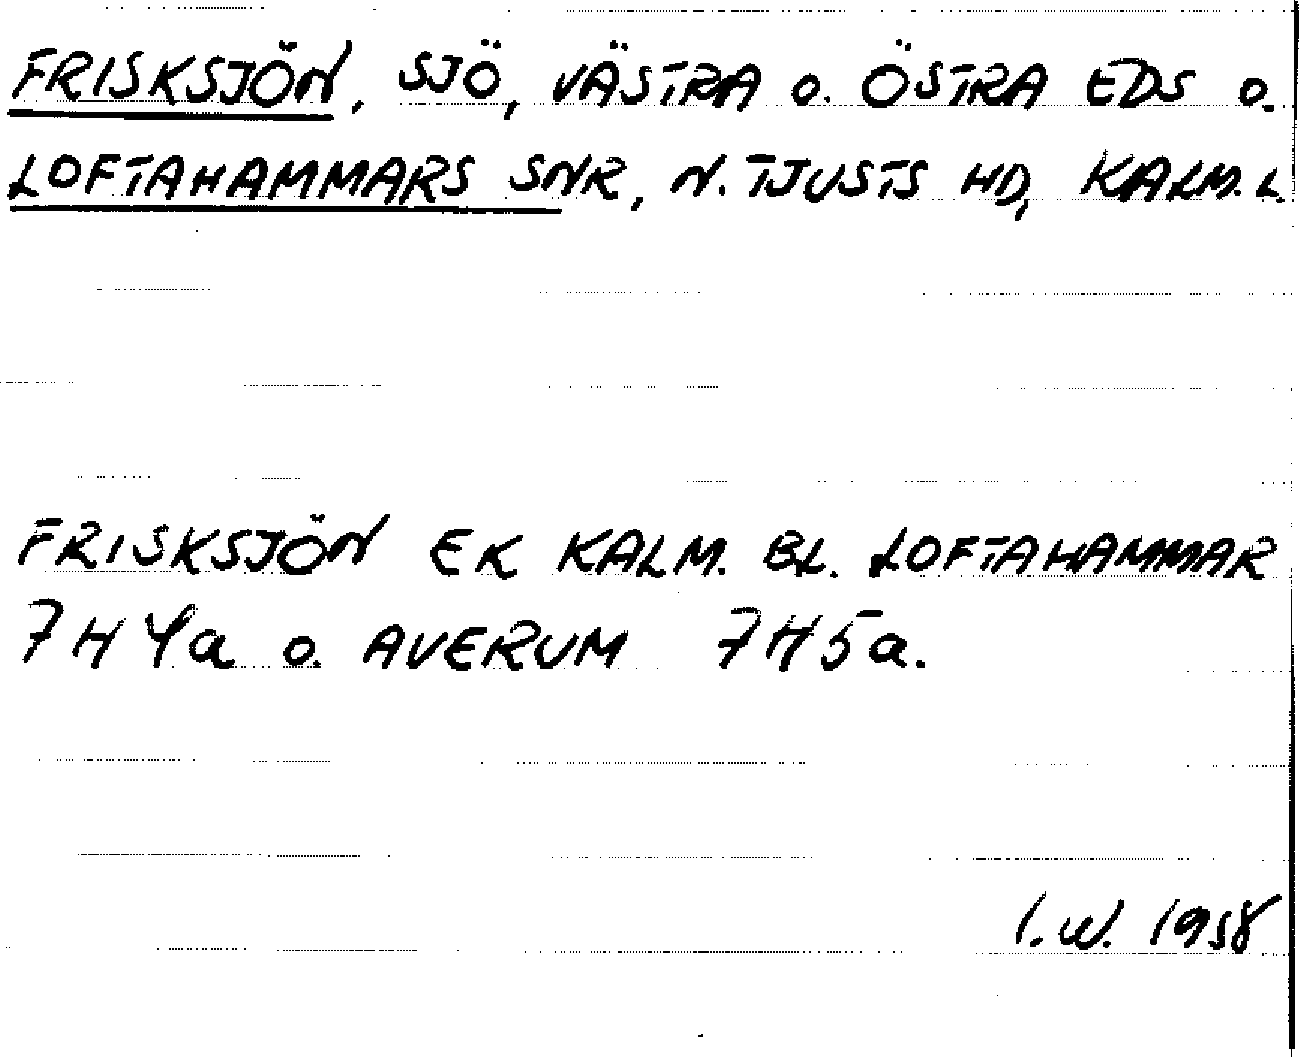 FRISKSJÖN, SJÖ, VÄSTRA o. ÖSTRA EDS o.
LOFTAHAMMARS SNR, N. TJUSTS HD, KALM. L.
FRISKSJÖN EK KALM. BL. LOFTAHAMMAR
7H4a o. AVERUM 7H5a.
I.W. 1958